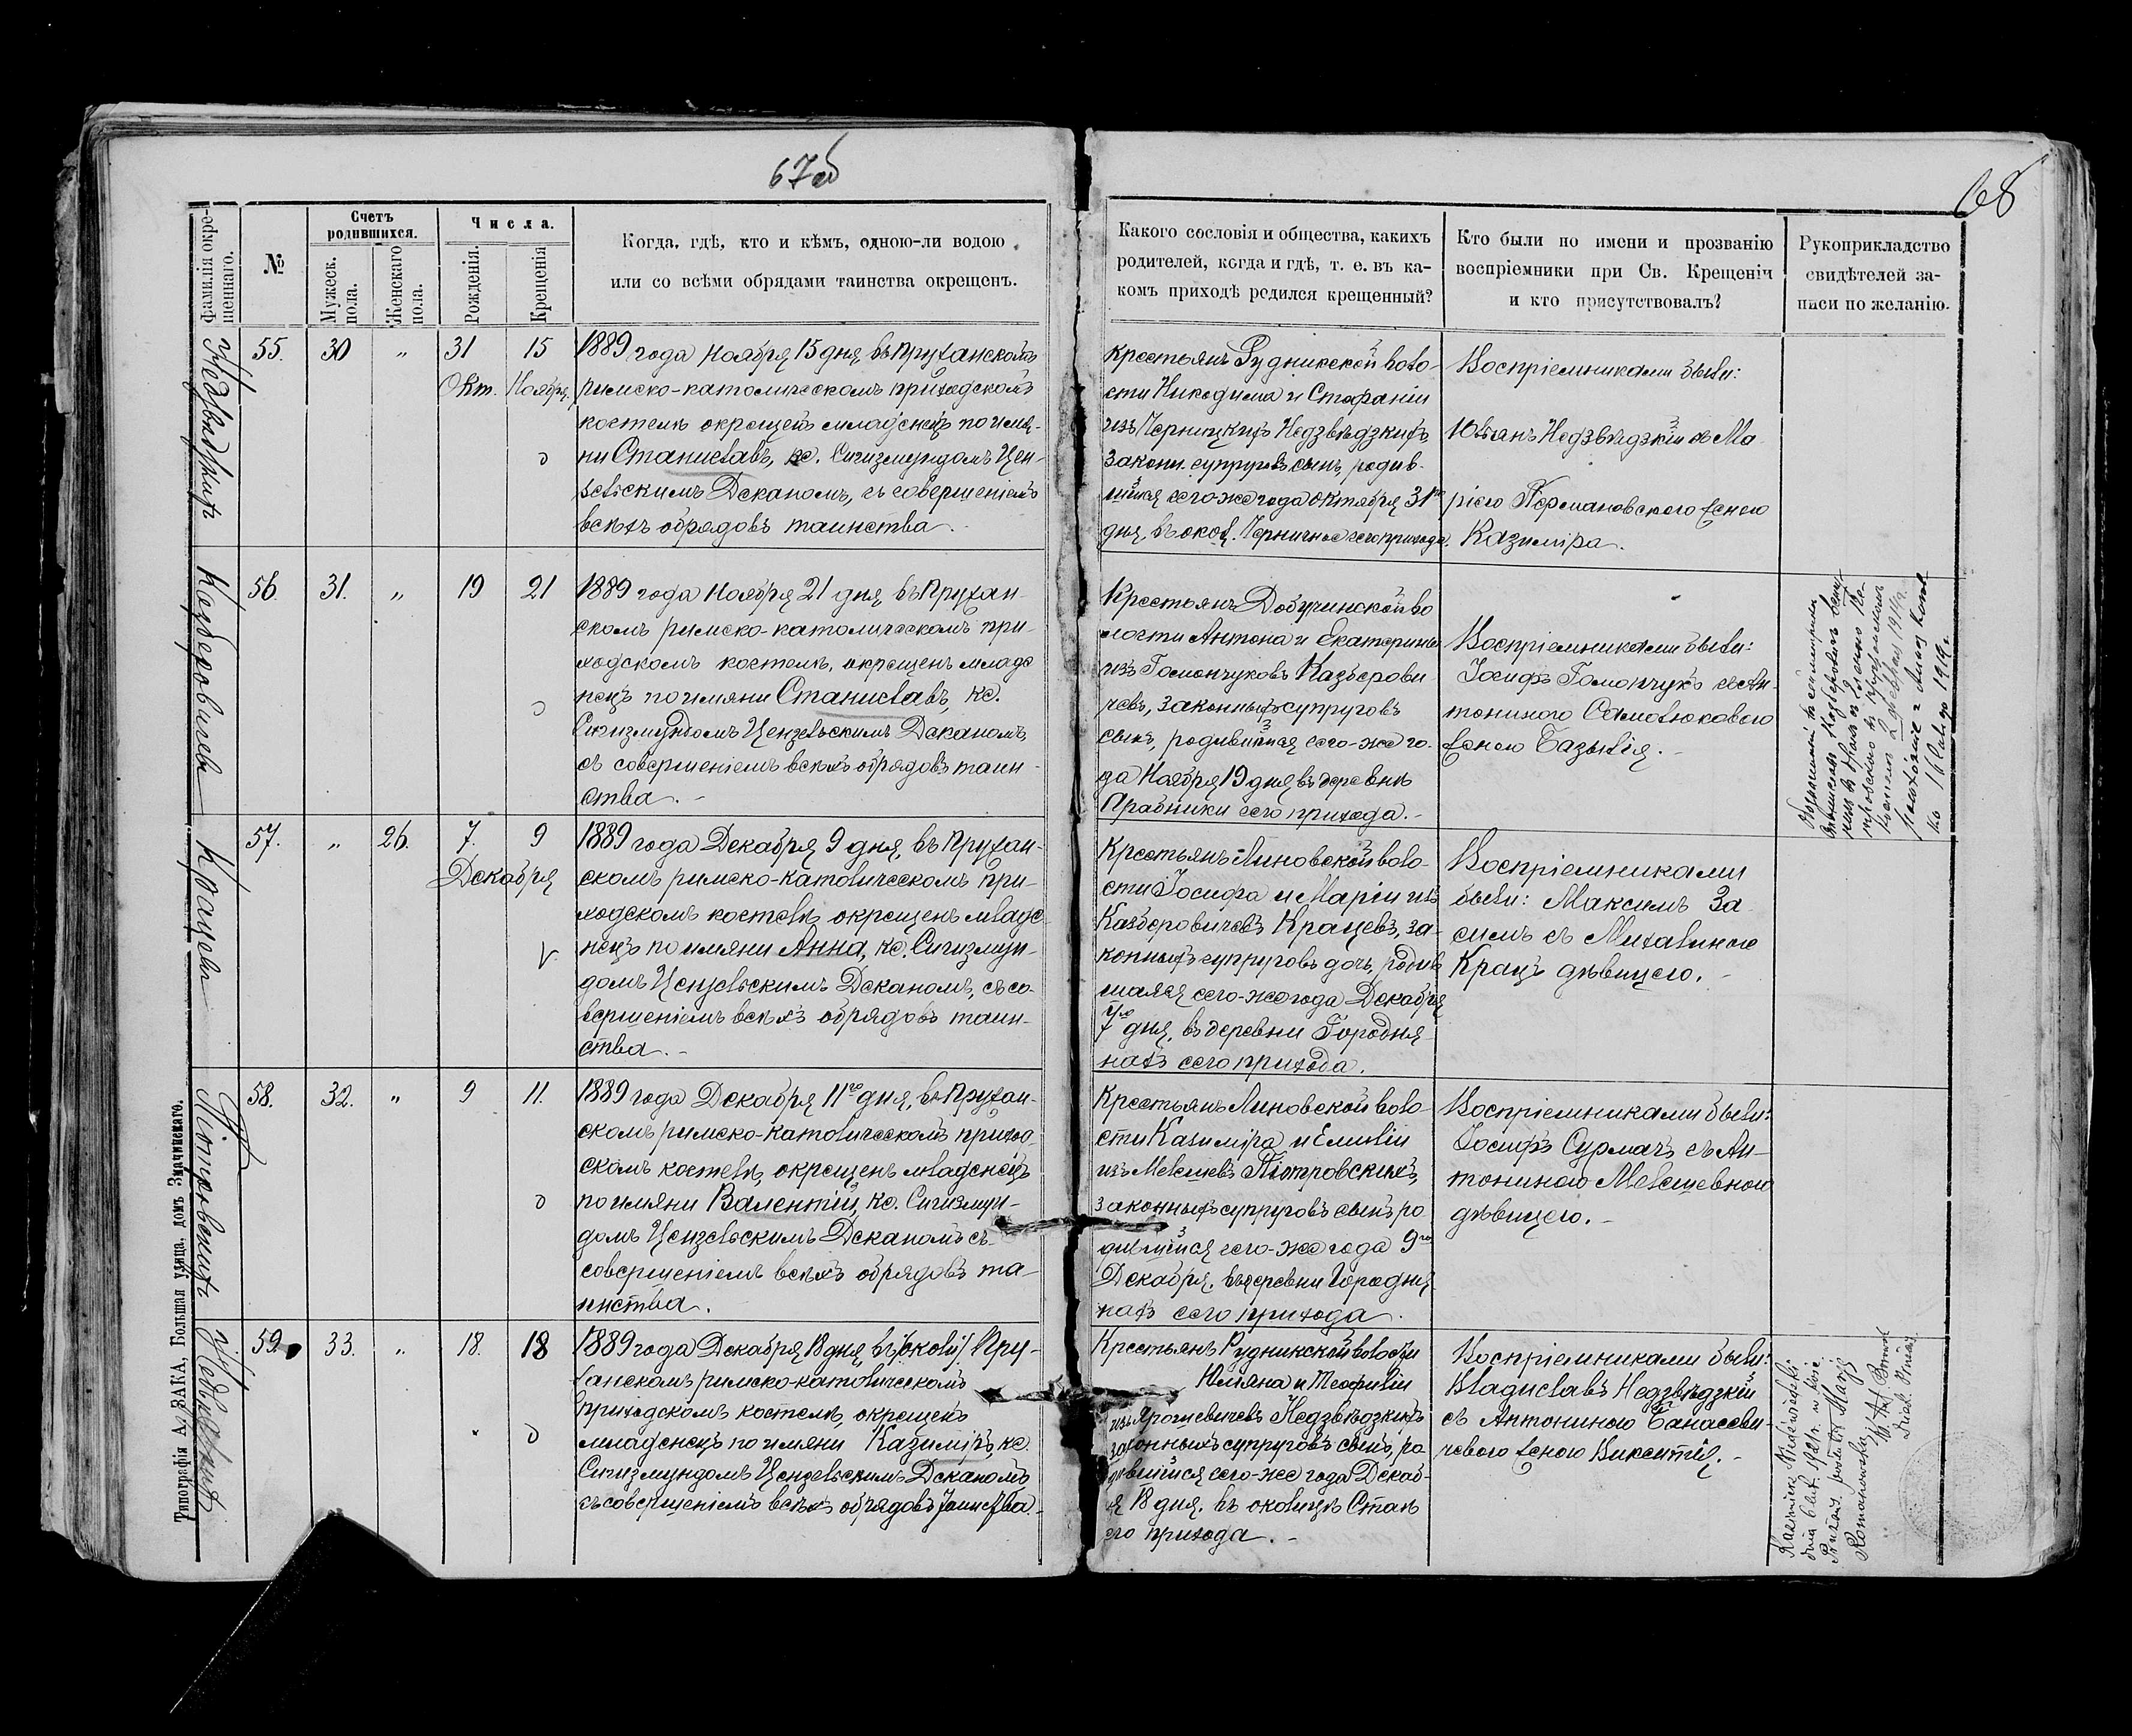 67об
68
Фамилія окре-
щеннаго.
№
Счетъ
родившихся.
Мужеск.
пола.
Женскаго
пола.
Числа.
Рожденія.
Крещенія
Когда, гдѣ, кто и кѣмъ, одною-ли водою
или со всѣми обрядами таинства окрещенъ.
Какого сословія и общества, какихъ
родителей, когда и гдѣ, т. е. въ ка-
комъ приходѣ родился крещенный?
Кто были по имени и прозванію
воспріемники при Св. Крещеніи
и кто присутствовалъ?
Рукоприкладство
свидѣтелей за-
писи по желанію.
Недзвѣдзкихъ
55. 30 „ 31 15
Окт. Ноября
1889 года Ноября 15 дня, въ Пружанскомъ
римско-католическомъ приходскомъ
костелѣ окрещенъ младенецъ по имя-
ни Станиславъ, кс. Сигизмундомъ Цен-
зельскимъ Деканомъ, съ совершеніемъ
всѣхъ обрядовъ таинства.
Крестьянъ Рудникской воло-
сти Никодима и Стефаніи
изъ Черницкихъ Недзвѣдзкихъ
законн. супруговъ сынъ, родив-
шійся сего-же года Октября 31го
дня, въ окол. Чернично сего прихода.
Воспріемниками были:
Юльянъ Недзвѣдзкій съ Ма-
ріею женою
Казиміра.
Казберовичевъ
56. 31. „ 19 21
1889 года Ноября 21 дня, въ Пружан-
скомъ римско-католическомъ при-
ходскомъ костелѣ, окрещенъ младе-
нецъ по имяни Станиславъ, кс.
Сигизмундомъ Цензельскимъ Деканомъ,
съ совершеніемъ всѣхъ обрядовъ таин-
ства. -
Крестьянъ Добучинской во
лости Антона и Екатерины
изъ Гомончуковъ Казберови
чевъ, законныхъ супруговъ
сынъ, родившійся сего-же го-
да Ноября 19 дня въ деревнѣ
Арабники сего прихода. -
Воспріемниками были:
Іосифъ Гомончукъ съ Ан-
тониною Самолюковою
женою Базылія. -
Крацевъ
57. „ 26. 7. 9
Декабря
1889 года Декабря 9 дня, въ Пружан-
скомъ римско-католическомъ при-
ходскомъ костелѣ окрещенъ младе-
нецъ по имяни Анна, кс. Сигизмун-
домъ Цензельскимъ Деканомъ, съ со-
вершеніемъ всѣхъ обрядовъ таин-
ства. -
Крестьянъ Линовской воло-
сти Іосифа и Маріи изъ
Казберовичевъ Крацевъ, за-
конныхъ супруговъ дочь, родив
шаяся сего-же года Декабря
7го дня, въ деревни Городня-
нахъ сего прихода.
Воспріемниками
были: Максимъ За
симъ съ Михалиною
Крацъ дѣвицею. -
Піотровскихъ
58. 32. „ 9 11.
1889 года Декабря 11го дня, въ Пружан-
скомъ римско-католическомъ приход
скомъ костелѣ, окрещенъ младенецъ
по имяни Валентій, кс. Сигизмун-
домъ Цензельскимъ Деканомъ съ
совершеніемъ всѣхъ обрядовъ та-
инства.
Крестьянъ Линовской воло-
сти Казиміра и Емиліи
изъ Мелешевъ Піотровскихъ,
законныхъ супруговъ сынъ ро
дившійся сего-же года 9го
Декабря, въ деревни Городня
нахъ сего прихода.
Воспріемниками были:
Іосифъ Сурмачъ съ Ан-
тониною Мелешевною
дѣвицею. -
Недзвѣдзкихъ
59. 33. „ 18. 18
1889 года Декабря 18 дня, въ Пру-
жанскомъ римско-католическомъ
приходскомъ костелѣ, окрещенъ
младенецъ по имяни Казиміръ, кс.
Сигизмундомъ Цензельскимъ Деканомъ
съ совершеніемъ всѣхъ обрядовъ таинства. -
Крестьянъ Рудникской волости
Юліяна и Теофиліи
изъ Ярошевичевъ Недзвѣдзкихъ
законныхъ супруговъ сынъ, ро
дившійся сего-же года Декаб-
я 18 дня, въ околицѣ Стап
его прихода. -
Воспріемниками были:
Владиславъ Недзвѣдзкій
съ Антониною Банасеви-
чевою женою Викентія. -
Kazimierz Niedźwiedzki
dnia 6 lut. 1921 r. w kośc.
Prużań. poślubił Marję
Romanowską
Типографія А. ЗАКА, Большая улица, домъ Значинскаго.